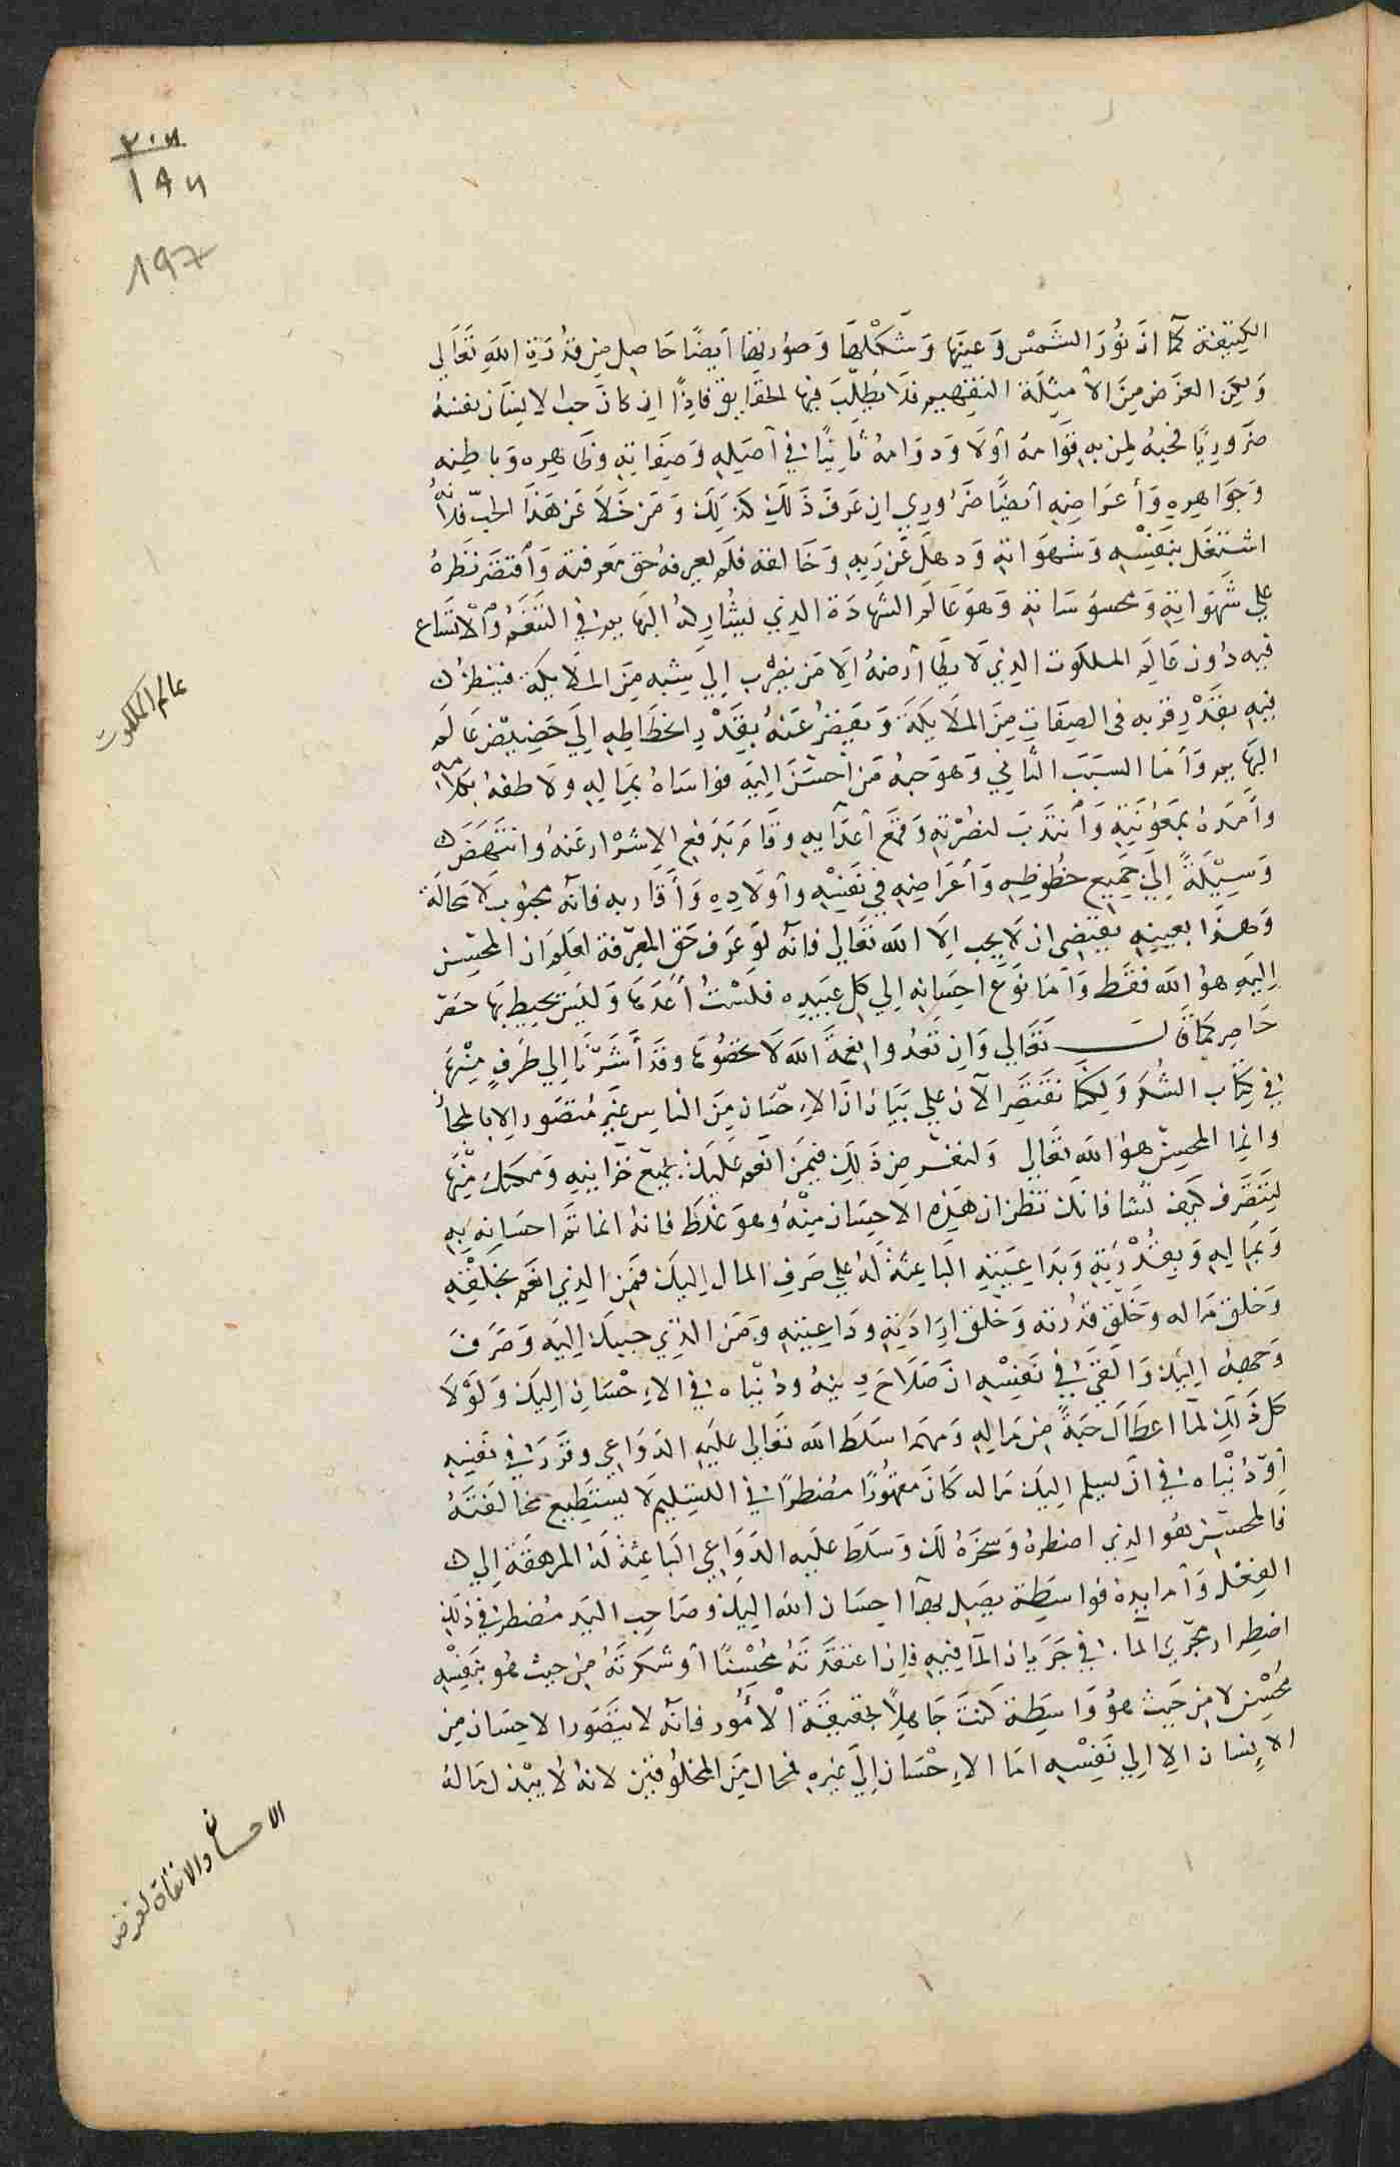 ٢٠٨
١٩٧
197
الكثيفة كما ان نور الشمس وعينها وشكلها وصورتها ايضا حاصل من قدرة الله تعالى
ولكن الغرض من الامثلة التفهيم فلا يطلب فيها الحقايق فاذا ان كان حب الانسان نفسه
ضروريا فحبه لمن به قوامه اولا ودوامه ثانيا في اصله وصفاته وظاهره وباطنه
وجواهره واعراضه ايضا ضروري ان عرف ذلك كذلك ومن خلا عن هذا الحب فلانه
اشتغل بنفسه وشهواته وذهل عن ربه وخالقه فلم يعرفه حق معرفته واقتصر نظره
علي شهواته ومحسوساته وهو عالم الشهادة الذي يشاركه البهايم في التنعم والاتساع
فيه دون عالم الملكوت الذي لا يطا ارضه الا من يقرب الي شبه من الملايكة فينظر
فيه بقدر قربه في الصفات من الملايكة ويقصر عنه بقدر انحطاطه الي حضيض عالم
البهايم واما السبب الثاني وهو حبه من احسن اليه فواساه بماله ولاطفه بكلامه
وامده بمعونته وانتدب لنصرته وقمع اعدايه وقام بدفع الاشرار عنه وانتهض
وسيلة الي جميع حظوظه واغراضه في نفسه واولاده واقاربه فانه محبوب لا محالة
وهذا بعينه يقتضي ان لا يحب الا الله تعالى فانه لو عرف حق المعرفة لعلم ان المحسن
اليه هو الله فقط واما نوع احسانه الي كل عبيده فلست اعدها وليس يحيط بها حصر
حاصر كما قال تعالي وان تعدوا نعمة الله لا تحصوها وقد اشرنا الي طرف منها
في كتاب الشكر ولكنا نقتصر الآن علي بيان ان الاحسان من الناس غير متصور الا بالمجاز
وانما المحسن هو الله تعالي ولنفرض ذلك فيمن انعم عليك بجميع خزاينه ومكنك منها
لتتصرف كيف تشا فانك تظن ان هذه الاحسان منه وهو غلط فانه انما تم احسانه به
وبماله وبقدرته وبداعيته الباعثة له علي صرف المال اليك فمن الذي انعم بخلقه
وخلق ماله وخلق قدرته وخلق ارادته وداعيته ومن الذي حببك اليه وصرف
وجهه اليك والقى في نفسه ان صلاح دينه ودنياه في الاحسان اليك ولولا
كل ذلك لما اعطاك حبة من ماله ومهما سلط الله تعالي عليه الدواعي وقرر في نفسه
او دنياه في ان يسلم اليك ماله كان مقهورا مضطرا في التسليم لا يستطيع مخالفته
فالمحسن هو الذي اضطره وسخره لك وسلط عليه الدواعي الباعثة له المرهقة الي
الفعل واما يده فواسطة يصل بها احسان الله اليك وصاحب اليد مضطر في ذلك
اضطرار مجري الما في جريان الما فيه فان اعتقدته محسنا او شكرته من حيث هو بنفسه
محسن لا من حيث هو واسطة كنت جاهلا بحقيقة الامور فانه لا يتصور الاحسان من
الانسان الا الي نفسه اما الاحسان الي غيره فمحال من المخلوقين لانه لا يبذل ماله
عالم الملكوت
الاحسان والانفاق لغرض